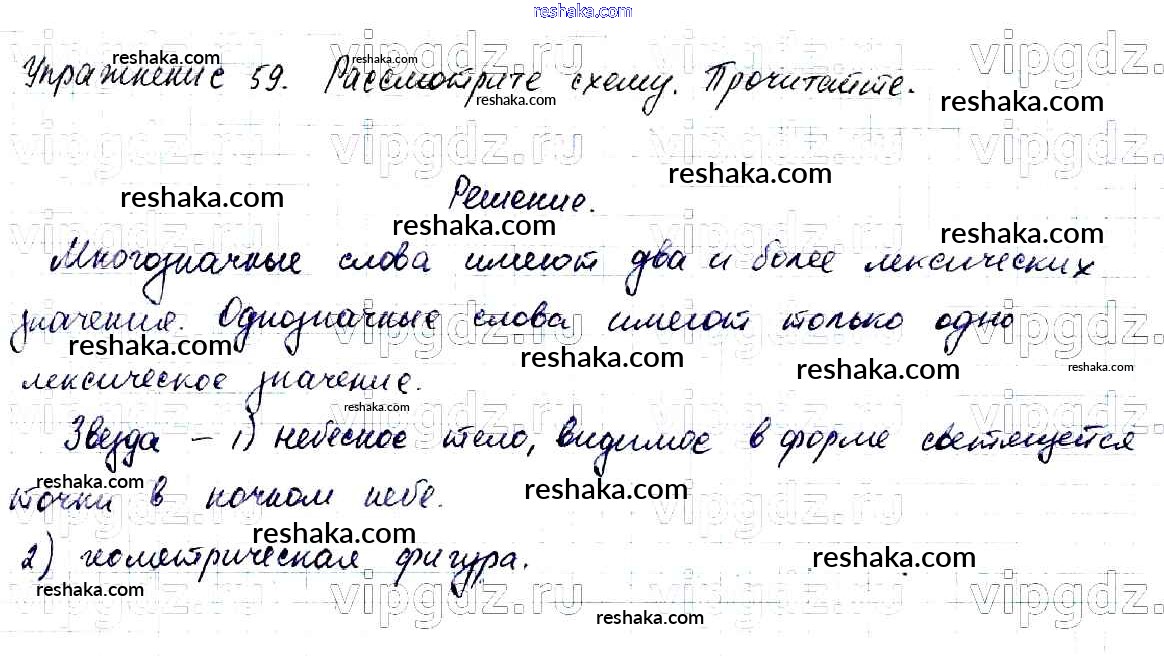 reshaka.com
Упражнение 59. Рассмотрите схему. Прочитайте.
Решение.
Многозначные слова имеют два и более лексических
значения. Однозначные слова имеют только одно
лексическое значение.
Звезда – 1) небесное тело, видимое в форме светящейся
точки в ночном небе.
2) геометрическая фигура.